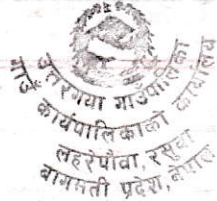 उत्तरगया गाउँपालिका
गाउँ कार्यपालिकाको कार्यालय
लहरेपौवा, रसुवा
बागमती प्रदेश, नेपाल